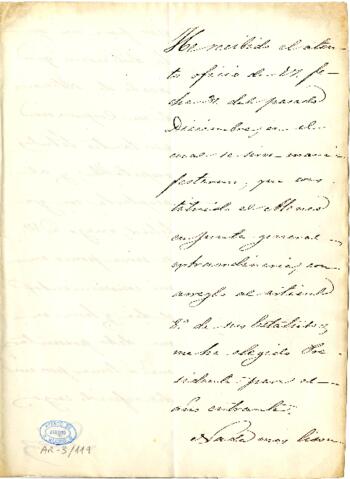 He recibido el aten-
to oficio de V. fe-
cha 31 del pasado
Diciembre, en el
cual se sirve mani-
festarme, que cons-
tituido el Ateneo
en junta general
extraordinaria, con
arreglo al artículo
8º de sus Estatutos,
me ha elegido Pre-
sidente para el
año entrante.
Nada mas lison-
AR-3/119